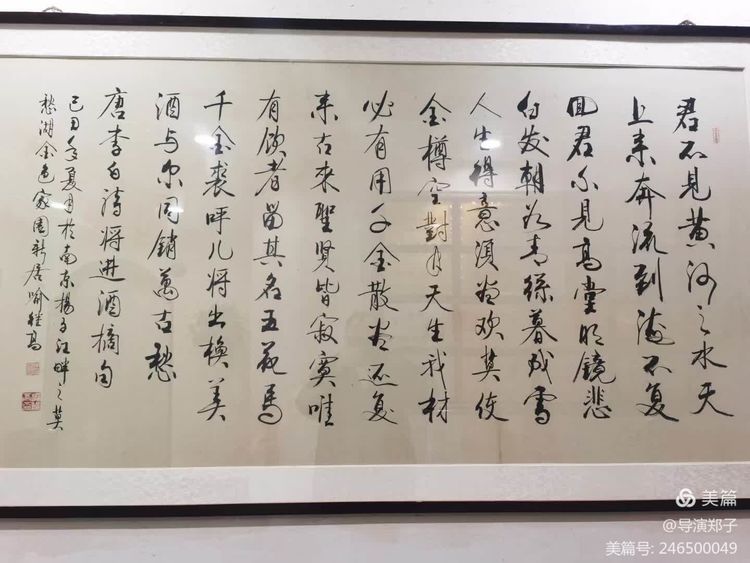 君不見黄河之水天
上来奔流到海不复
回君不见高堂明镜悲
白发朝如青絲暮成雪
人生得意须尽欢莫使
金樽空對月天生我材
必有用千金散尽还复
来古来聖贤皆寂寞唯
有饮者留其名五花馬
千金裘呼儿将出换美
酒与尔同銷萬古愁
唐李白诗将进酒摘句
己丑年夏月於南京扬子江畔之莫
愁湖金色家园新居喻继高
美篇
@导演郑子
美篇号: 246500049